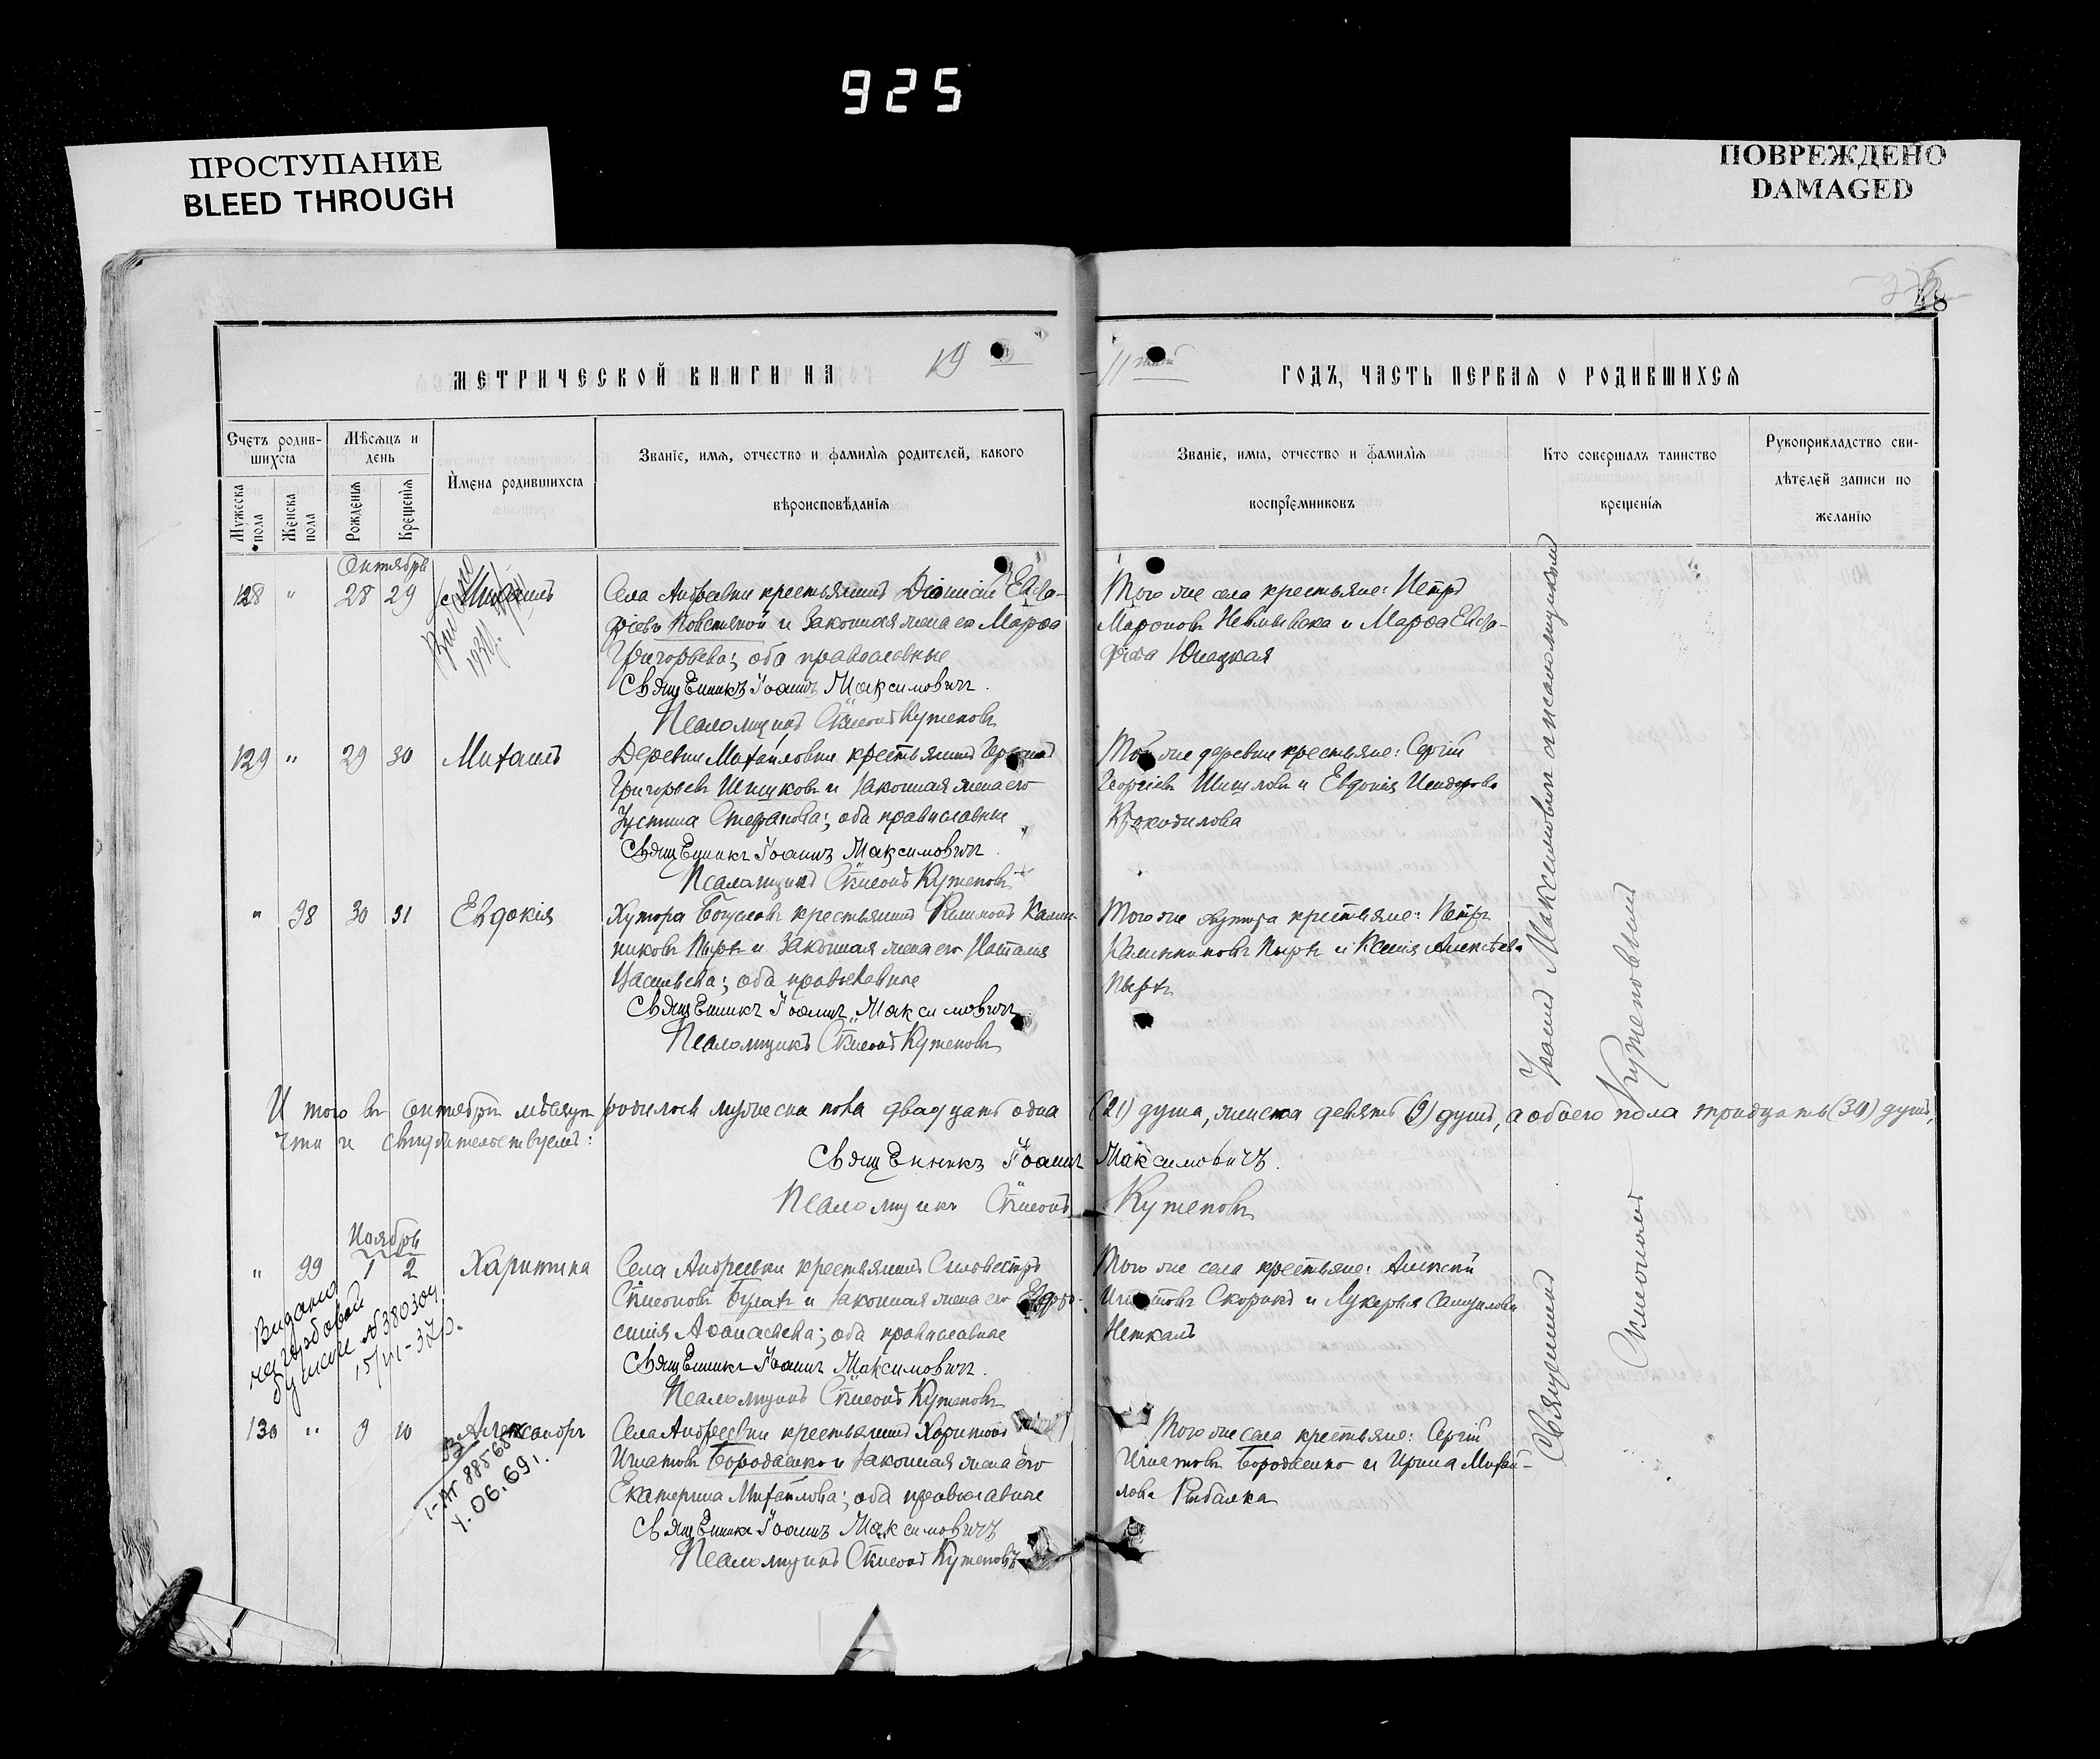 925
ПРОСТУПАНИЕ
BLEED THROUGH
ПОВРЕЖДЕНО
DAMAGED
48
МЕТРИЧЕСКОЙ КНИГИ НА 19
11 ГОДЪ, ЧАСТЬ ПЕРВАЯ О РОДИВШИХСЯ
Счетъ родив-
шихся
Мужеска пола
Женска пола
Мѣсяцъ и
день
Рожденія
Крещенія
Имена родившихся
Званіе, имя, отчество и фамилія родителей, какого
вѣроисповѣданія
Званіе, имя, отчество и фамилія
воспріемниковъ
Кто совершалъ таинство
крещенія
Рукоприкладство сви-
дѣтелей записи по
желанію
Октябрь
128 " 28 29 Михаилъ
Села Андреевки крестьянинъ Діонисій Евсе-
віевъ и законная жена его Марѳа
Григорьева; оба православные
Священникъ Іоаннъ Максимовичъ.
Псаломщикъ Симеонъ Кутеповъ
Того же села крестьяне: Петръ
и Марѳа Евсе-
129 " 29 30 Михаилъ
Деревни Михайловки крестьянинъ
Григорьевъ Шишковъ и законная жена его
Іустина Стефанова; оба православные
Священникъ Іоаннъ Максимовичъ.
Псаломщикъ Симеонъ Кутеповъ
Той же деревни крестьяне: Сергій
Георгіевъ и Евдокія Исидорова
Крокодилова
" 98 30 31 Евдокія
Хутора крестьянинъ Филимонъ Калин-
никовъ Пыръ и законная жена его Наталія
Васильева; оба православные
Священникъ Іоаннъ Максимовичъ
Псаломщикъ Симеонъ Кутеповъ
Того же хутора крестьяне: Петръ
Калинниковъ Пыръ и Ксенія Алексѣева
Пыръ
Итого въ октябрѣ мѣсяцѣ родилось мужеска пола двадцать одна (21) душа, женска девять (9) душъ, а обоего пола тридцать (30) душъ,
что и свидѣтельствуемъ:
Священникъ Іоаннъ Максимовичъ.
Псаломщикъ Симеонъ Кутеповъ
Ноябрь
" 99 1 2 Харитина
Села Андреевки крестьянинъ Сильвестръ
Симеоновъ Булахъ и законная жена его Евфро-
синія Аѳанасьева; оба православные
Священникъ Іоаннъ Максимовичъ.
Псаломщикъ Симеонъ Кутеповъ
Того же села крестьяне: Алексѣй
Игнатовъ Скорикъ и Лукерья Самуилова
Видано
на гербовой
380304
15/VI-37р.
130 " 9 10 Александръ
Села Андреевки крестьянинъ Харитонъ
Игнатовъ Бородаенко и законная жена его
Екатерина Михайлова; оба православные
Священникъ Іоаннъ Максимовичъ
Псаломщикъ Симеонъ Кутеповъ
Того же села крестьяне: Сергій
Игнатовъ Бородаенко и Ирина Михай-
лова Рыбалка
Священникъ Іоаннъ Максимовичъ и псаломщикъ
Симеонъ Кутеповъ